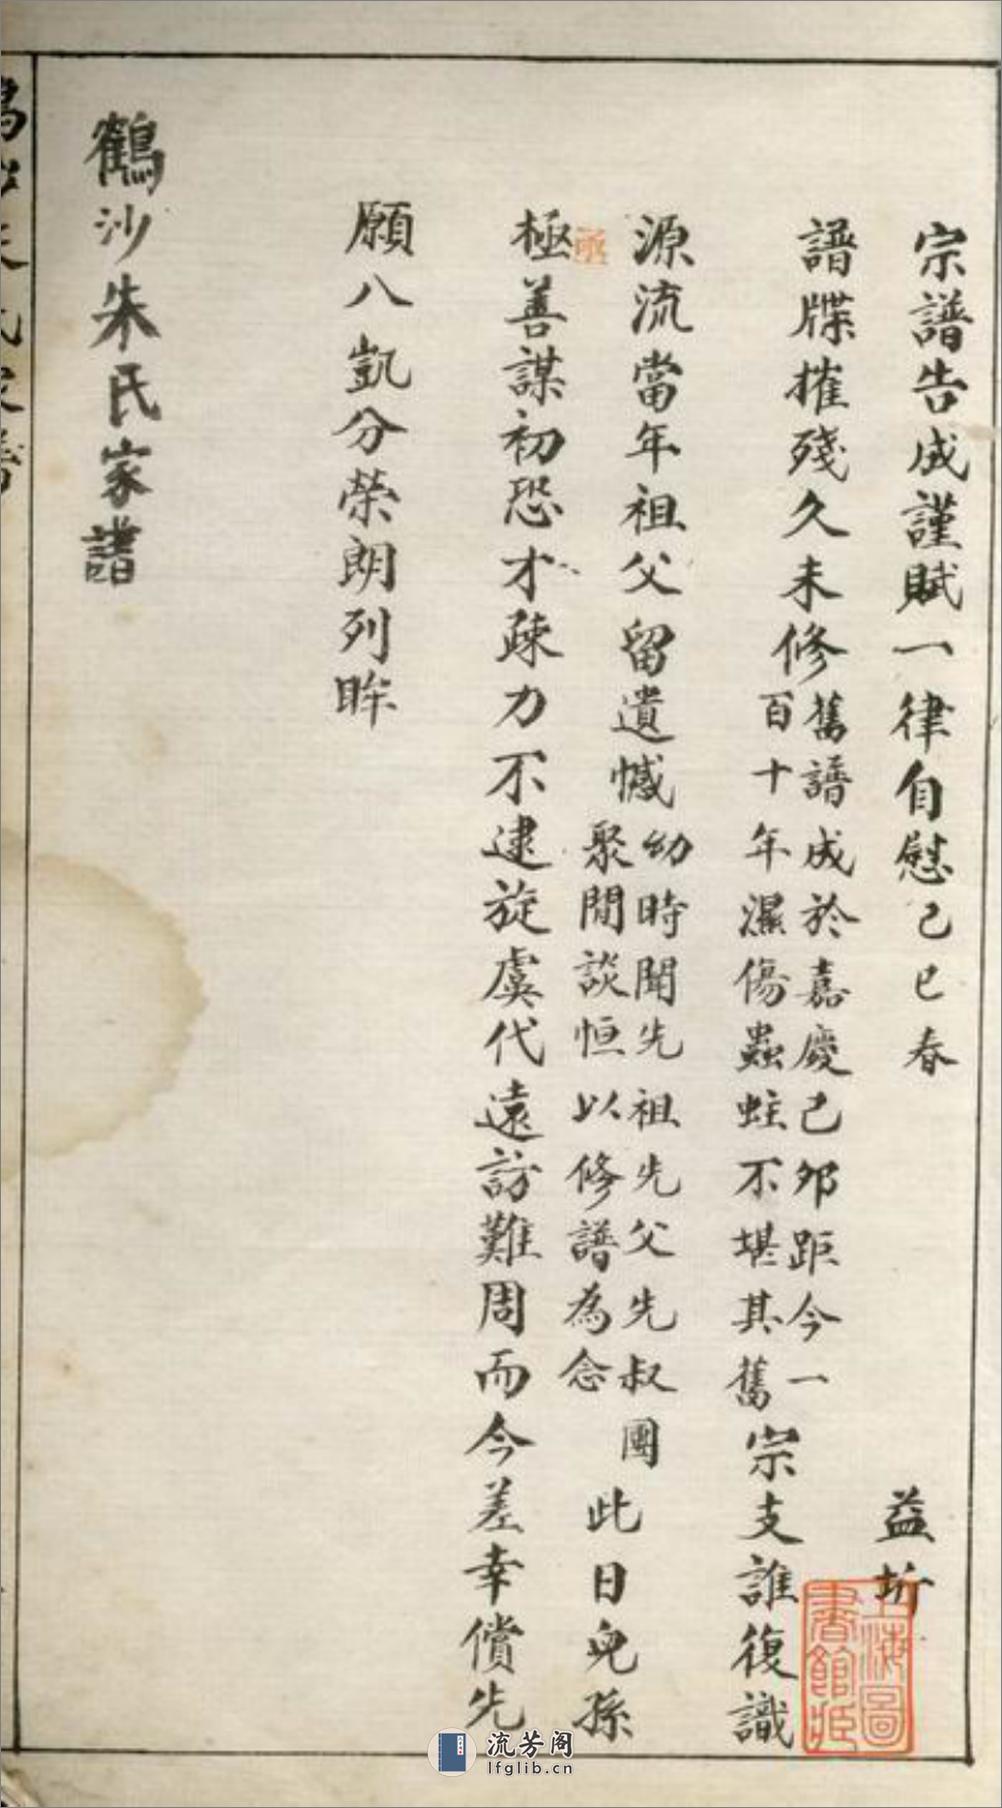 宗譜告成謹賦一律自慰己巳春 益圻
譜牒摧殘久未修舊譜成於嘉慶己卯距今一百十年濕傷蟲蛀不堪其舊宗支誰復識
源流當年祖父留遺憾幼時聞先祖先父先叔團聚閒談恒以修譜為念此日兒孫
極亟善謀初恐才疎力不逮旋虞代遠訪難周而今差幸償先
願八凱分榮朗列眸
鶴沙朱氏家譜
上海圖書館藏
流芳阁
lfglib.cn